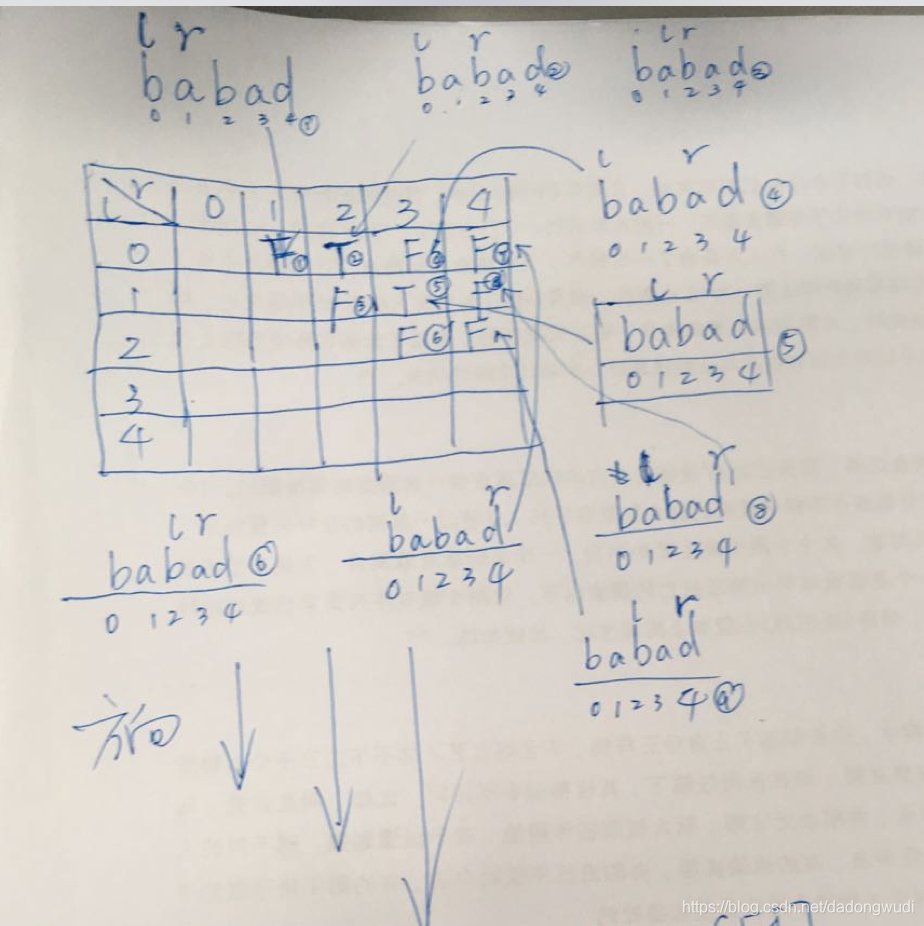 l r
babad
0 1 2 3 4 ①
l r
babad ②
0 1 2 3 4
l r
babad ③
0 1 2 3 4
l r
babad ④
0 1 2 3 4
l r 0 1 2 3 4
0 F① T② F④ F⑦
1 F③ T⑤ F⑧
2 F⑥ F
3
4
l r
babad ⑤
0 1 2 3 4
l r
babad ⑥
0 1 2 3 4
l r
babad
0 1 2 3 4
l r
babad ⑧
0 1 2 3 4
l r
babad
0 1 2 3 4 ⑨
方向
https://blog.csdn.net/dadongwudi